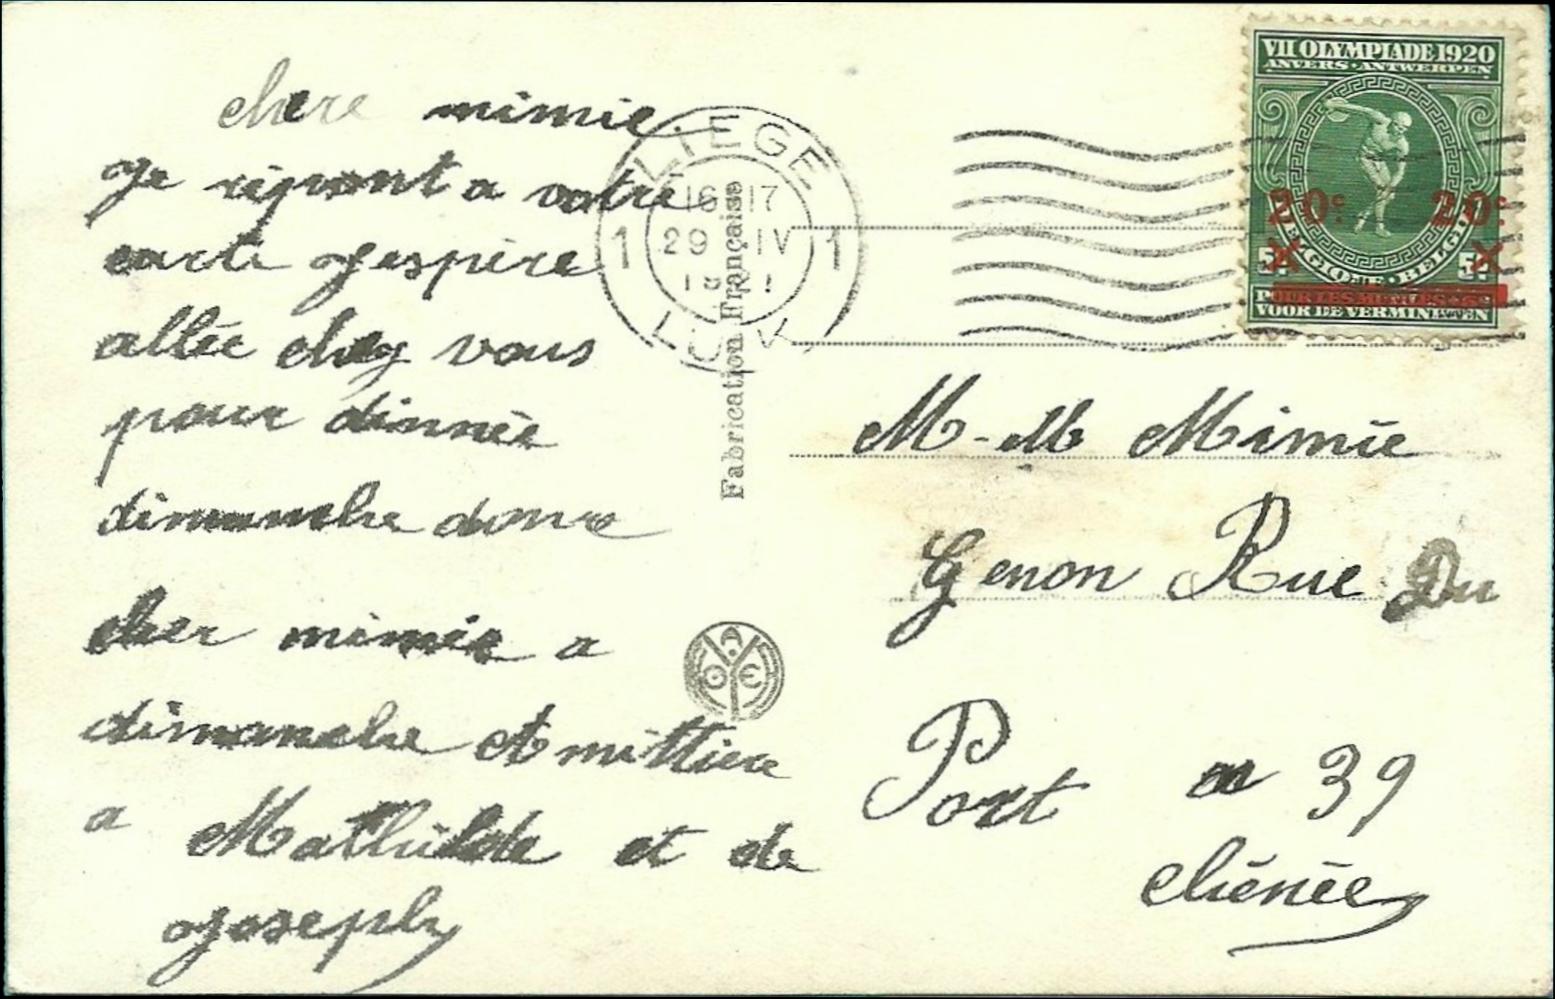 chere mimie
Je répont a votre
carte Jespère
allée chez vous
pour dinnée
dimanche donc
cher mimie a
dimanche et mittier
a Mathilde et de
Joseph
LIEGE
1 16-17 1
29 IV
LUIK
Fabrication Française
VII OLYMPIADE 1920
ANVERS · ANTWERPEN
20c 20c
BELGIQUE · BELGIË
5c 5c
POUR LES MUTILÉS
VOOR DE VERMINKTEN
M-elle Mimie
Genon Rue Du
Pont n 39
chênée